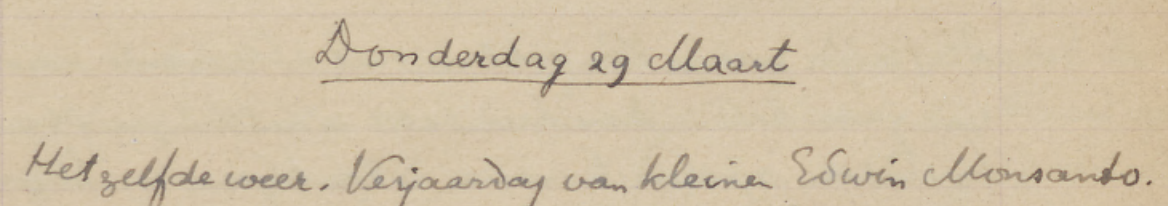 Donderdag 29 Maart
Hetzelfde weer. Verjaardag van kleinen Edwin Monsanto.